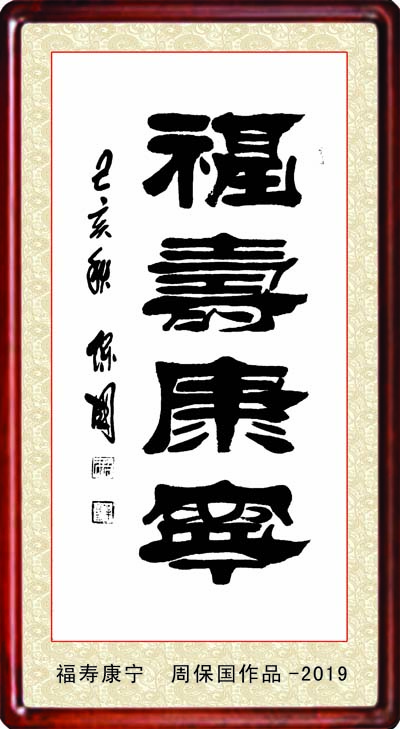 福壽康寧
己亥秋 保國
福寿康宁 周保国作品-2019